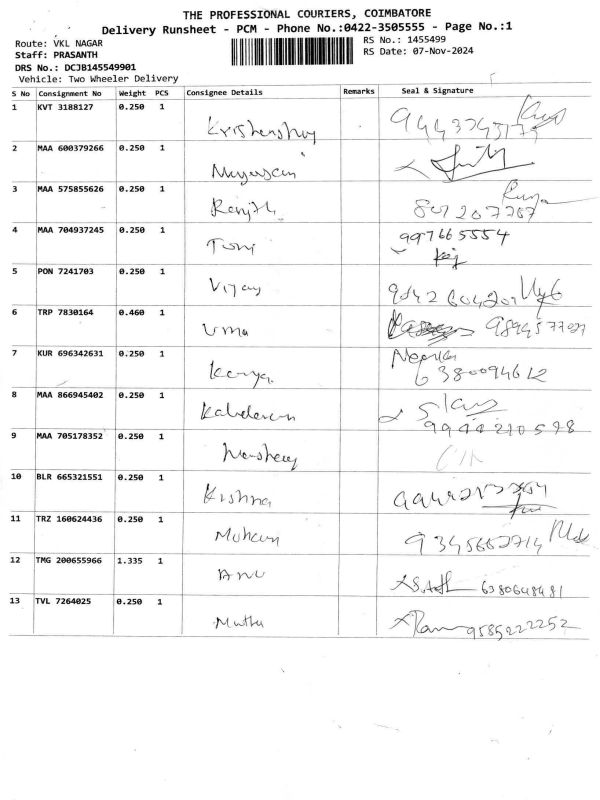 THE PROFESSIONAL COURIERS, COIMBATORE
Delivery Runsheet - PCM - Phone No.:0422-3505555 - Page No.:1
Route: VKL NAGAR
RS No.: 1455499
Staff: PRASANTH
RS Date: 07-Nov-2024
DRS No.: DCJB145549901
Vehicle: Two Wheeler Delivery
S No Consignment No Weight PCS Consignee Details Remarks Seal & Signature
1 KVT 3188127 0.250 1
2 MAA 600379266 0.250 1
3 MAA 575855626 0.250 1 Ranjith
4 MAA 704937245 0.250 1 997665554
5 PON 7241703 0.250 1 Vijay
6 TRP 7830164 0.460 1 Uma
7 KUR 696342631 0.250 1 Kavya 6380094612
8 MAA 866945402 0.250 1
9 MAA 705178352 0.250 1
10 BLR 665321551 0.250 1 Krishna
11 TRZ 160624436 0.250 1 Mohan
12 TMG 200655966 1.335 1 Anu 6380648481
13 TVL 7264025 0.250 1 Muthu 9585222252